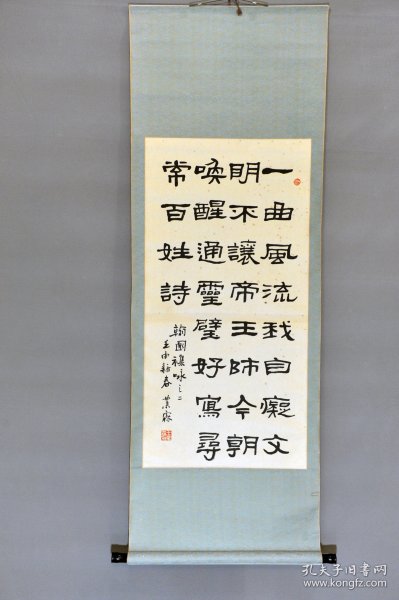 一曲風流我自癡文
明不讓帝王師今朝
喚醒通靈璧好寫尋
常百姓詩
翰園襍咏之二
壬申新春 業霖
孔夫子旧书网
www.kongfz.com